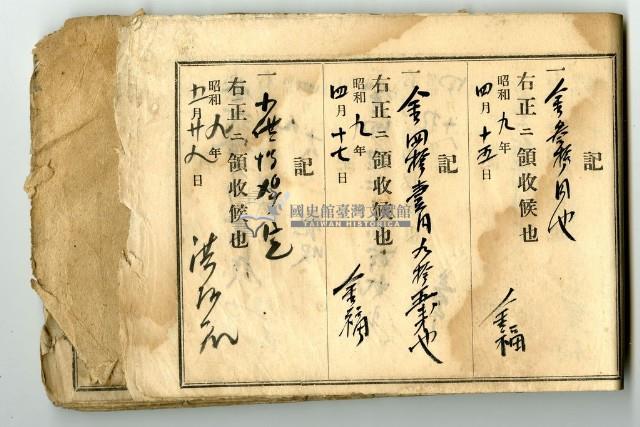 記
一金參拾円也
右正ニ領收候也
昭和九年
四月十五日
金福
記
一金四拾壹円九拾
右正ニ領收候也
昭和九年
四月十七日
金福
記
一
右正ニ領收候也
昭和九年
五月廿八日
洪
國史館臺灣文獻館
TAIWAN HISTORICA